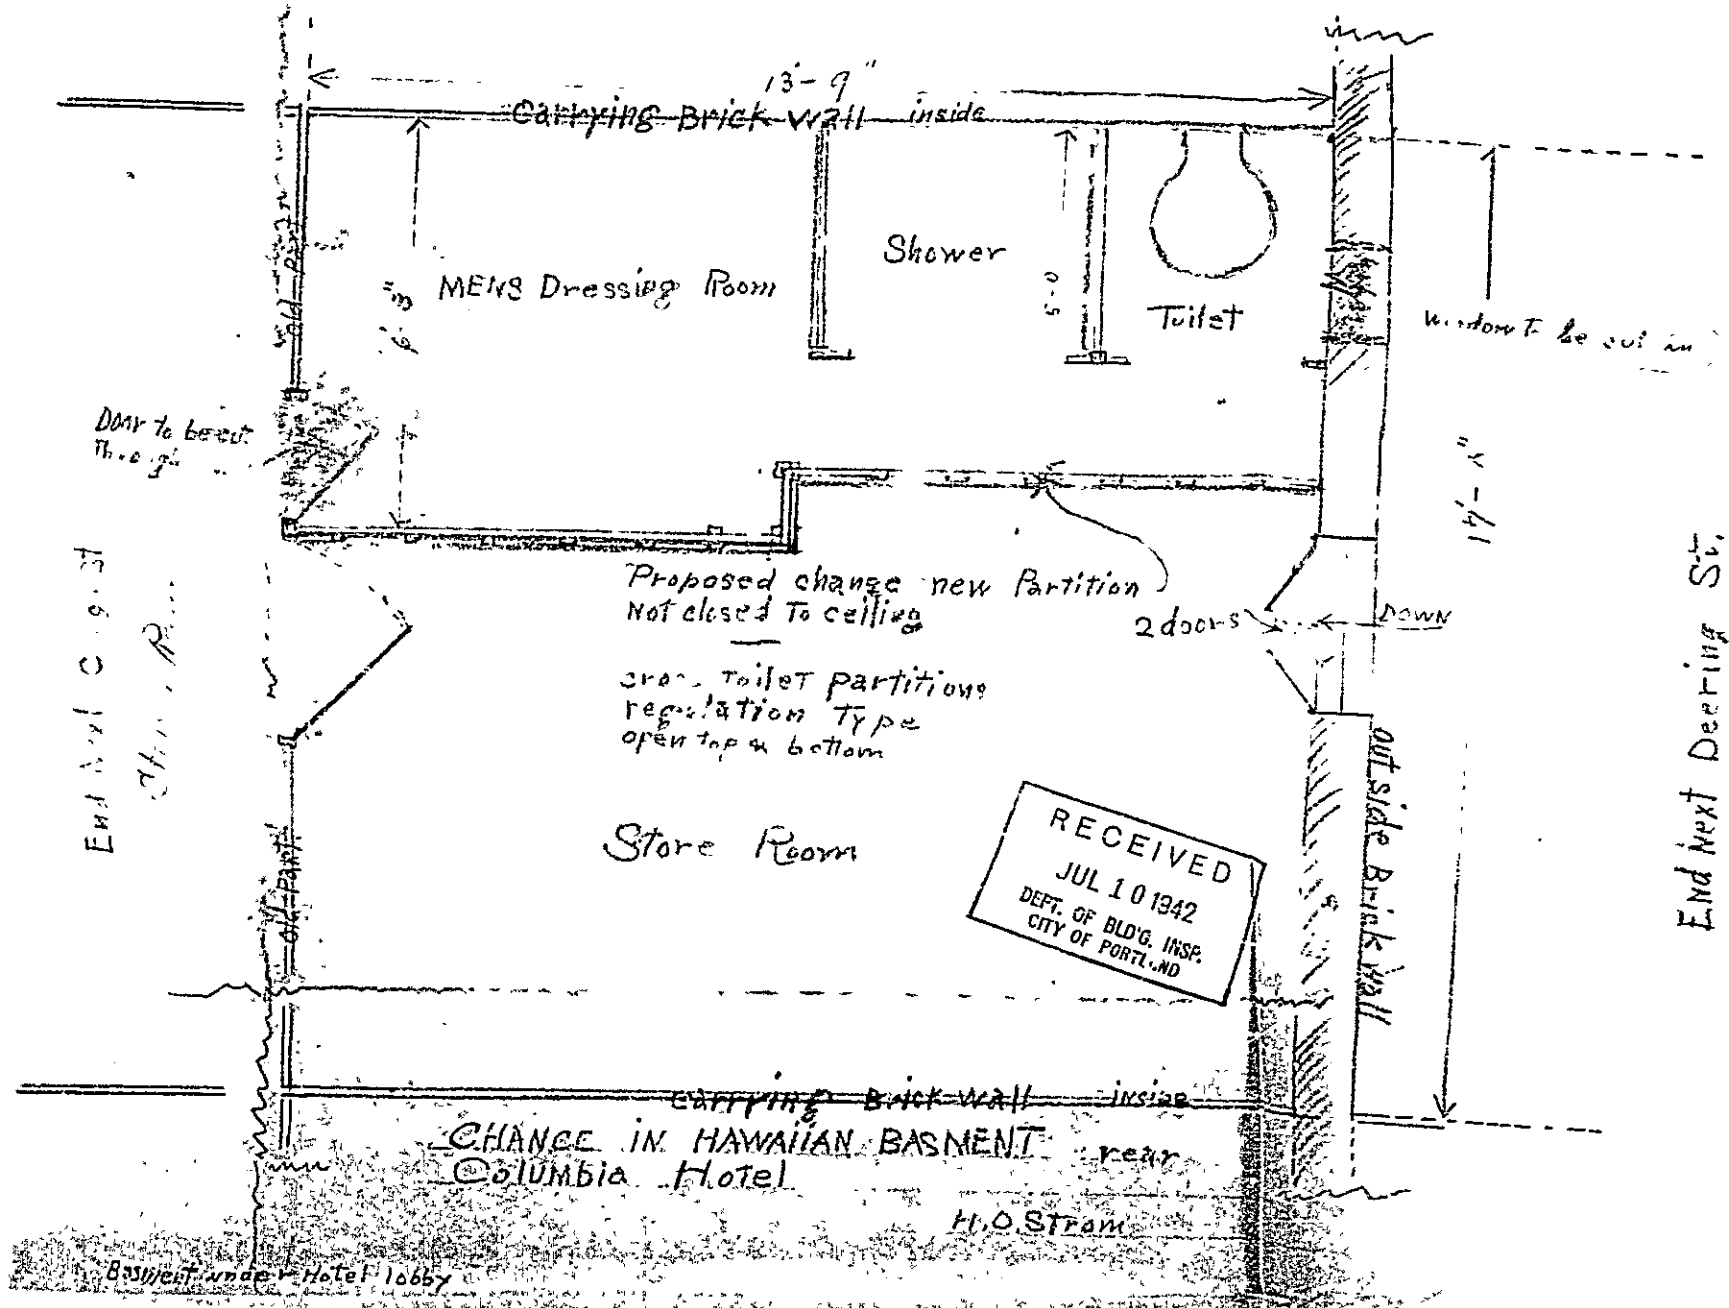 13'-9"
Carrying Brick Wall inside
Old Part
MENS Dressing Room
Shower
5-0
Toilet
Window To be cut in
Door to be cut
Through
Proposed change new Partition
Not closed To ceiling
Toilet partitions
regulation Type
open top & bottom
2 doors
DOWN
End Next
Store Room
RECEIVED
JUL 10 1942
DEPT. OF BLD'G. INSP.
CITY OF PORTL.ND
Old Part
out side Brick Wall
End Next Deering St.
Carrying Brick Wall inside
CHANGE IN HAWAIIAN BASMENT rear
Columbia Hotel
H.O. Strom
Basment under Hotel lobby